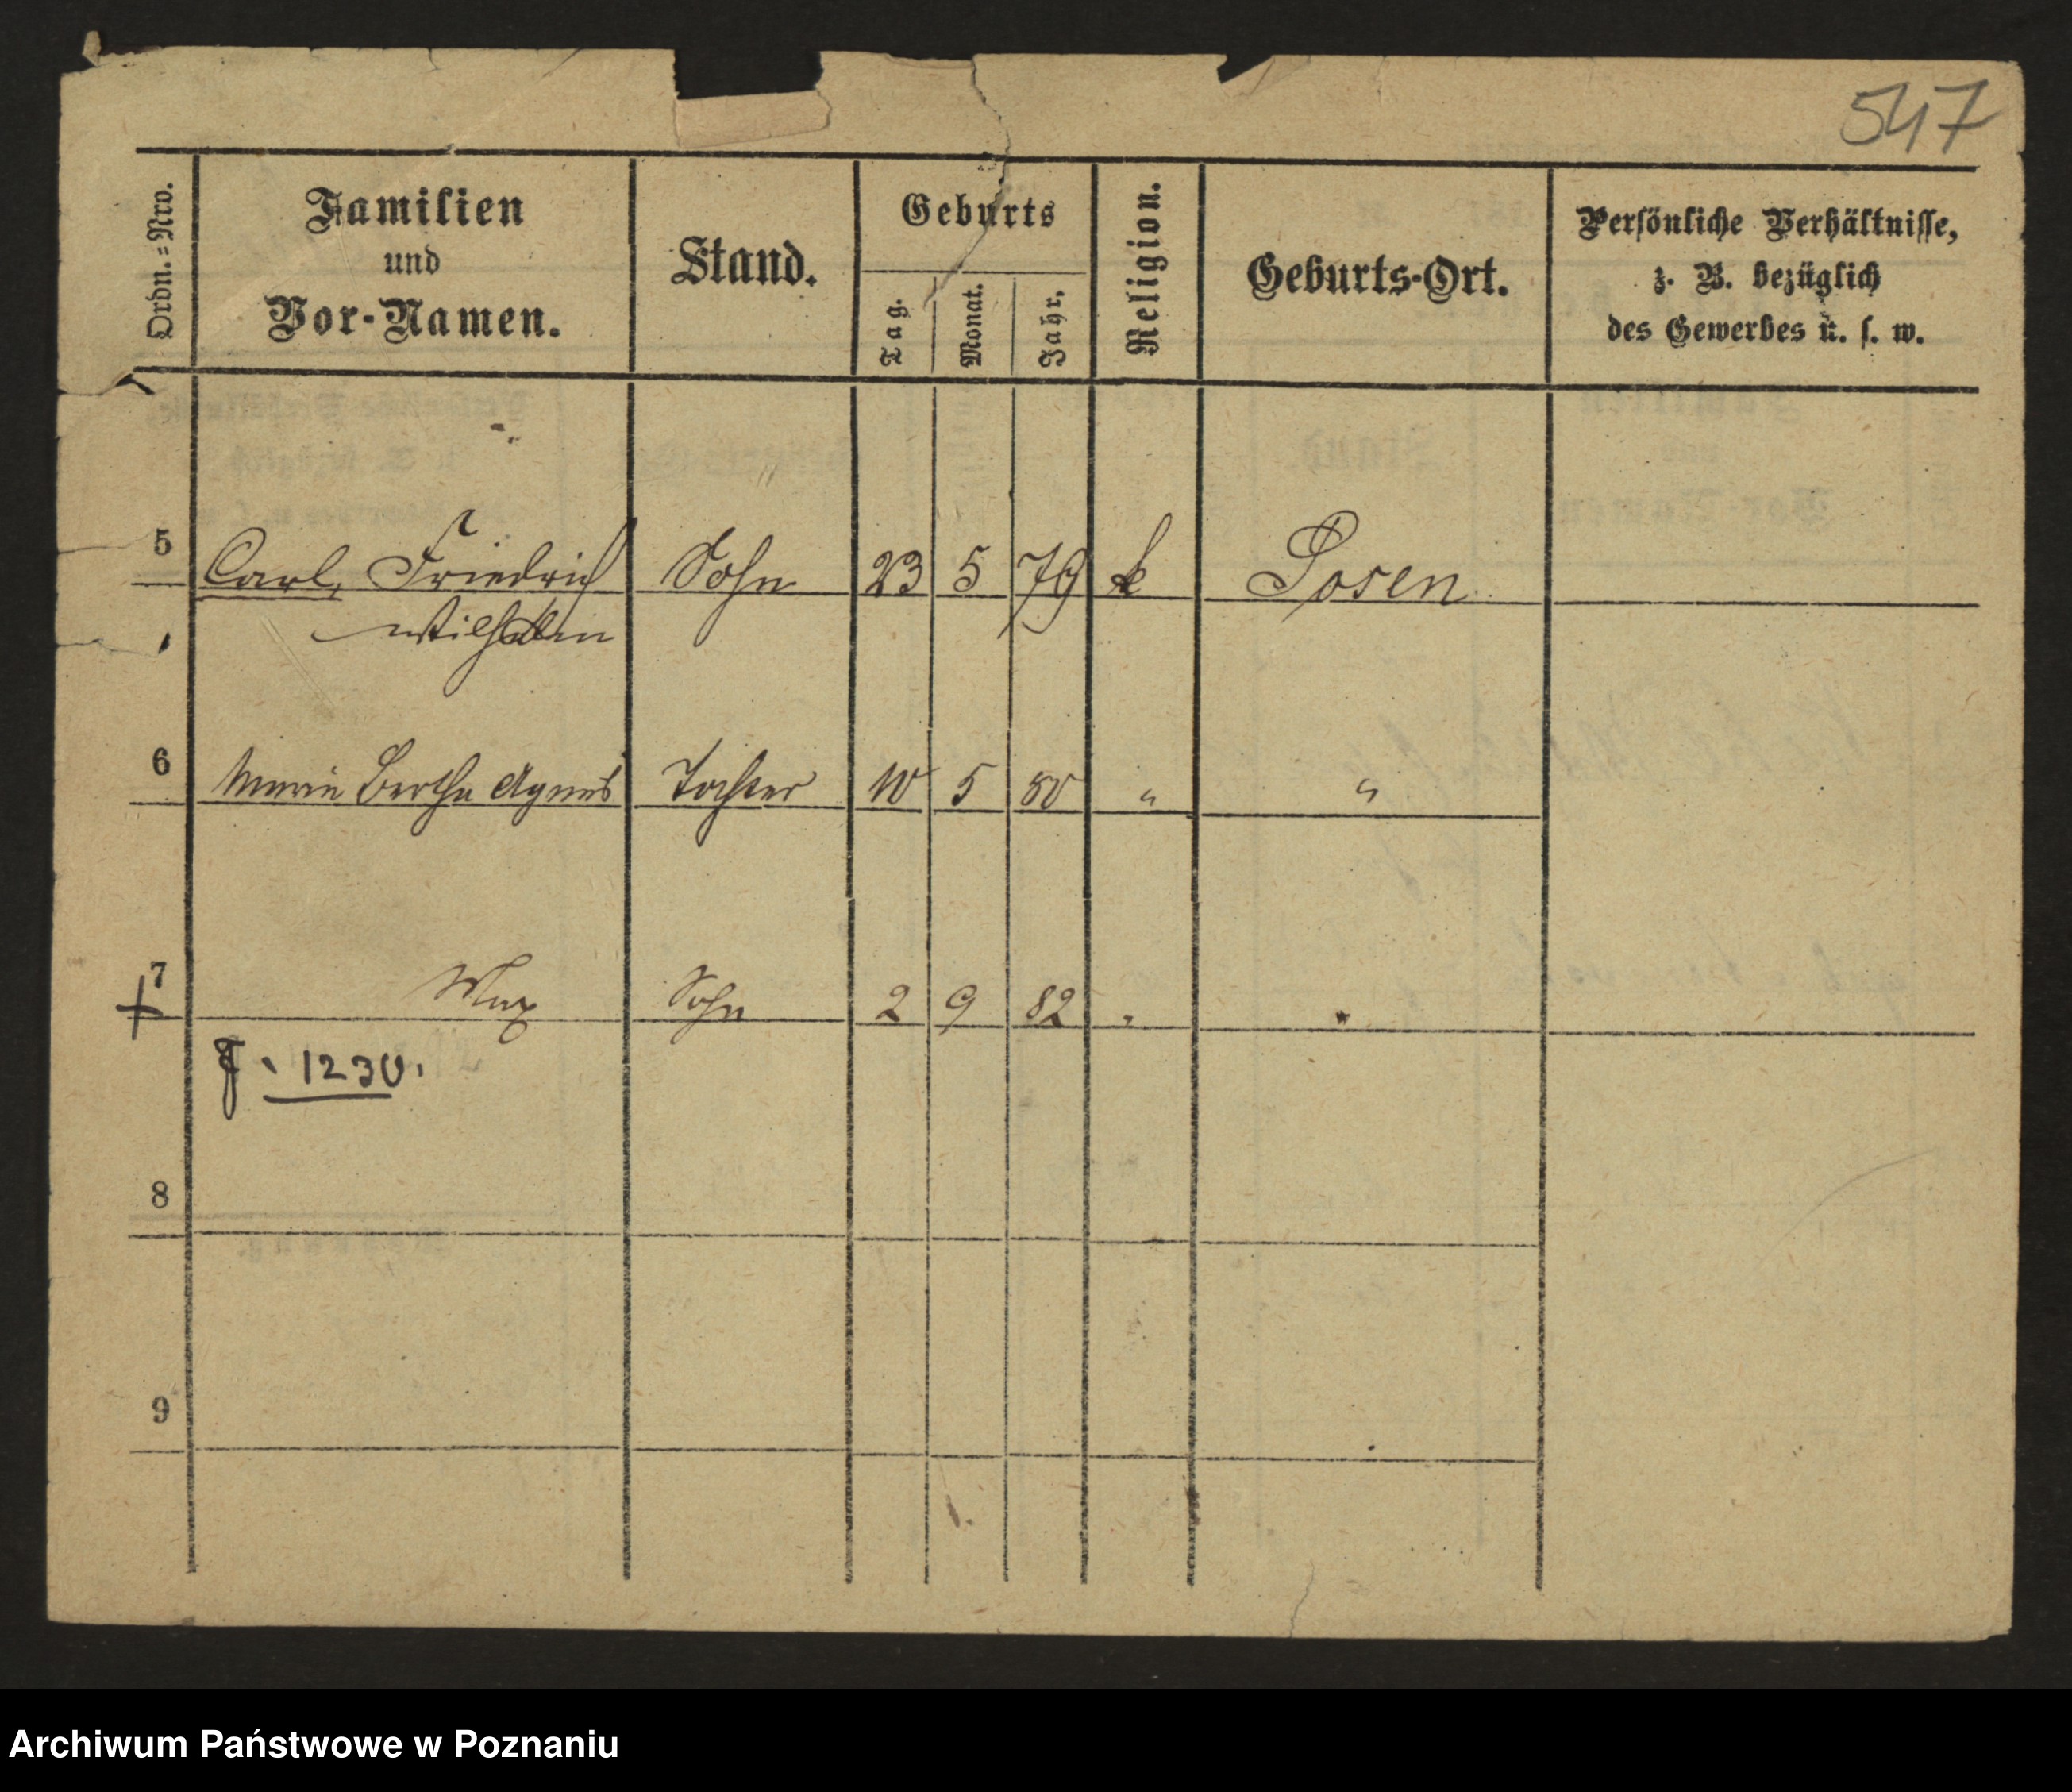 547
Ordn.=Nro.
Familien
und
Vor-Namen.
Stand.
Geburts
Tag.
Monat.
Jahr.
Religion.
Geburts-Ort.
Persönliche Verhältnisse,
z. B. bezüglich
des Gewerbes u. s. w.
5 Carl, Friedrich Sohn 23 5 79 k Posen
Wilhelm
6 Marie Bertha Agnes Tochter 10 5 80 " "
7 Max Sohn 2 9 82 " "
J. 1230.
8
9
Archiwum Państwowe w Poznaniu